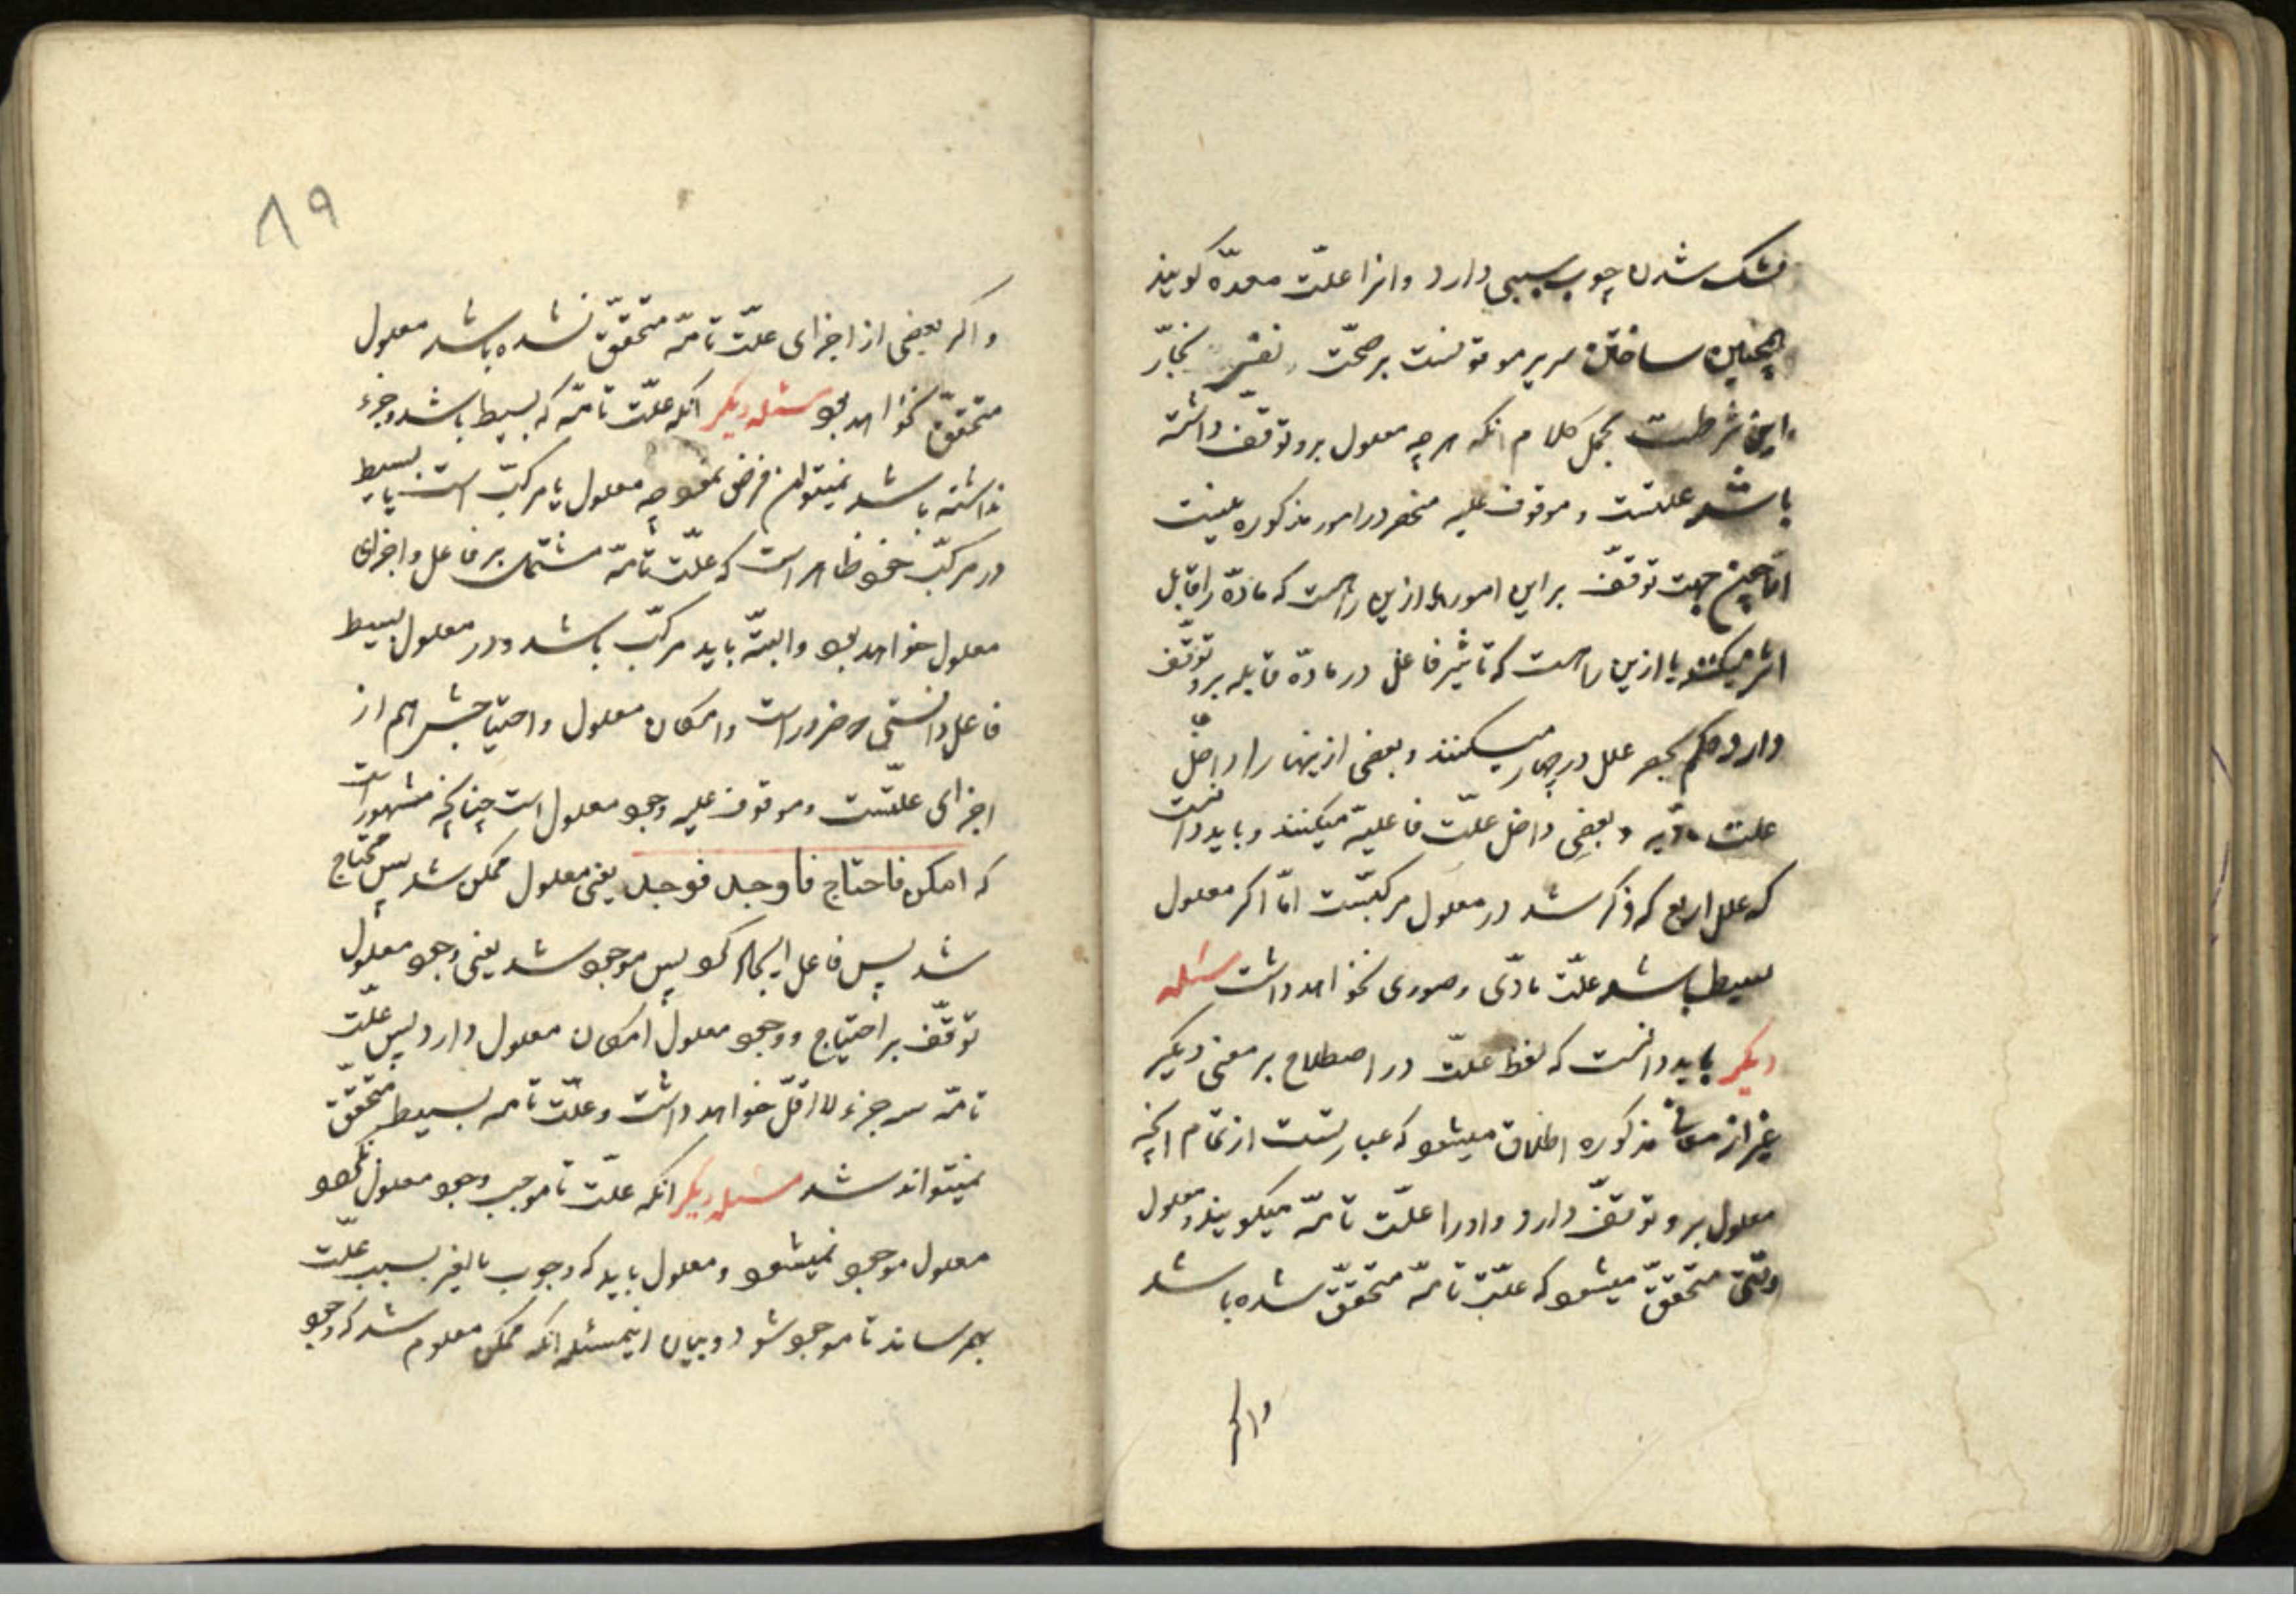 خشک شدن چوب سببی دارد و انرا علّت معدّه کویند
همچنین ساختن سریر موقوفست بر صحّت نفس نجّار
و این شرطست مجمل کلام انکه هر چه معلول برو توقف داشته
باشد علتست و موقوف علیه منحصر در امور مذکوره نیست
امّا چون جهت توقّف بر این امور یا ازین راهست که مادّه را قابل
اثر میکنند یا ازین راهست که تاثیر فاعل در مادّه قابله برو توقّف
دارد حکم بحصر علل در چهار میکنند و بعضی ازینها را داخل
علت مادّیه و بعضی داخل علّت فاعلیة میکنند و باید دانست
که علل اربع که ذکر شد در معلول مرکبّست امّا اکر معلول
بسیط باشد علّت مادّی و صوری نخواهد داشت مسئله
دیکر باید دانست که لفظ علّت در اصطلاح بر معنی دیکر
غیر از معانی مذکوره اطلاق میشود که عبارتست از تمام انچه
معلول برو توقّف دارد و اورا علّت تامّه میکویند و معلول
وقتی متحققّ میشود که علّت تامّه متحققّ شده باشد
واکر
۸۹
و اکر بعضی از اجزای علّت تامّه متحققّ نشده باشد معلول
متحققّ نخواهد بود مسئله دیکر انکه علّت تامّه که بسیط باشد و جزء
نداشته باشد نمیتوان فرض نمود چه معلول یا مرکبّ است یا بسیط
در مرکبّ خود ظاهر است که علّت تامّه مشتمل بر فاعل و اجزای
معلول خواهد بود و البتّه باید مرکبّ باشد و در معلول بسیط
فاعل دانستی که ضرور است و امکان معلول و احتیاجش هم از
اجزای علتّست و موقوف علیه وجود معلول است چنانچه مشهور است
که امکن فاحتاج فاوجد فوجد یعنی معلول ممکن شد پس محتاج
شد پس فاعل ایجاد کرد پس موجود شد یعنی وجود معلول
توقّف بر احتیاج و وجود معلول امکان معلول دارد پس علّت
تامّه سه جزء لا اقلّ خواهد داشت و علّت تامه بسیط متحقّق
نمیتواند شد مسئله دیکر انکه علّت تا موجب وجود معلول نکردد
معلول موجود نمیشود و معلول باید که وجوب بالغیر بسبب علّت
بهم رساند تا موجود شود و بیان اینمسئله انکه ممکن معلوم شد که وجود